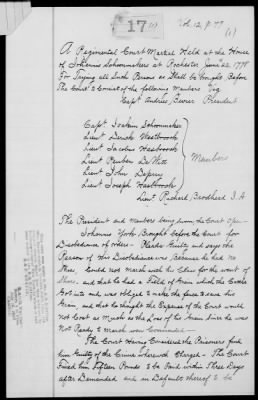 17
Vol. 12, p 77
(1)
A Regimental Court Martial Held at the House
of Johannis Schoonmakers at Rochester June 22, 1778
For Trying all Such Persons as Shall be brought Before
The Court & Consist of the following Members Viz
Capt Andries Bevier President
Capt Joakim Schoonmaker
Lieut Derick Westbrook
Lieut Jacobus Hasbrook
Lieut Reuben DeWitt
Lieut John Depuy
Lieut Joseph Hasbrook
Members
Lieut Richard Brodhead J. A
The President and Members being sworn the Court Open
Johannis York Brought before the Court for
Disobedience of orders - Pleads Guilty and says the
Reason of His Disobedience was because he had no
Shoes, Could not march with the Class for the want of
Shoes, and that he had a Field of Grain which the Cattle
Got into and was obliged to make the fence to save his
Grain, and that he thought the Expence of the Court would
not Cost as Much as the Loss of his Grain Since he was
Not Ready to March when Commanded -
The Court Having Considered the Prisoners find
him Guilty of the Crime wherewith Charged - The Court
Fined him Fifteen Pounds to be Paid within Three Days
after Demanded and in Default thereof to be